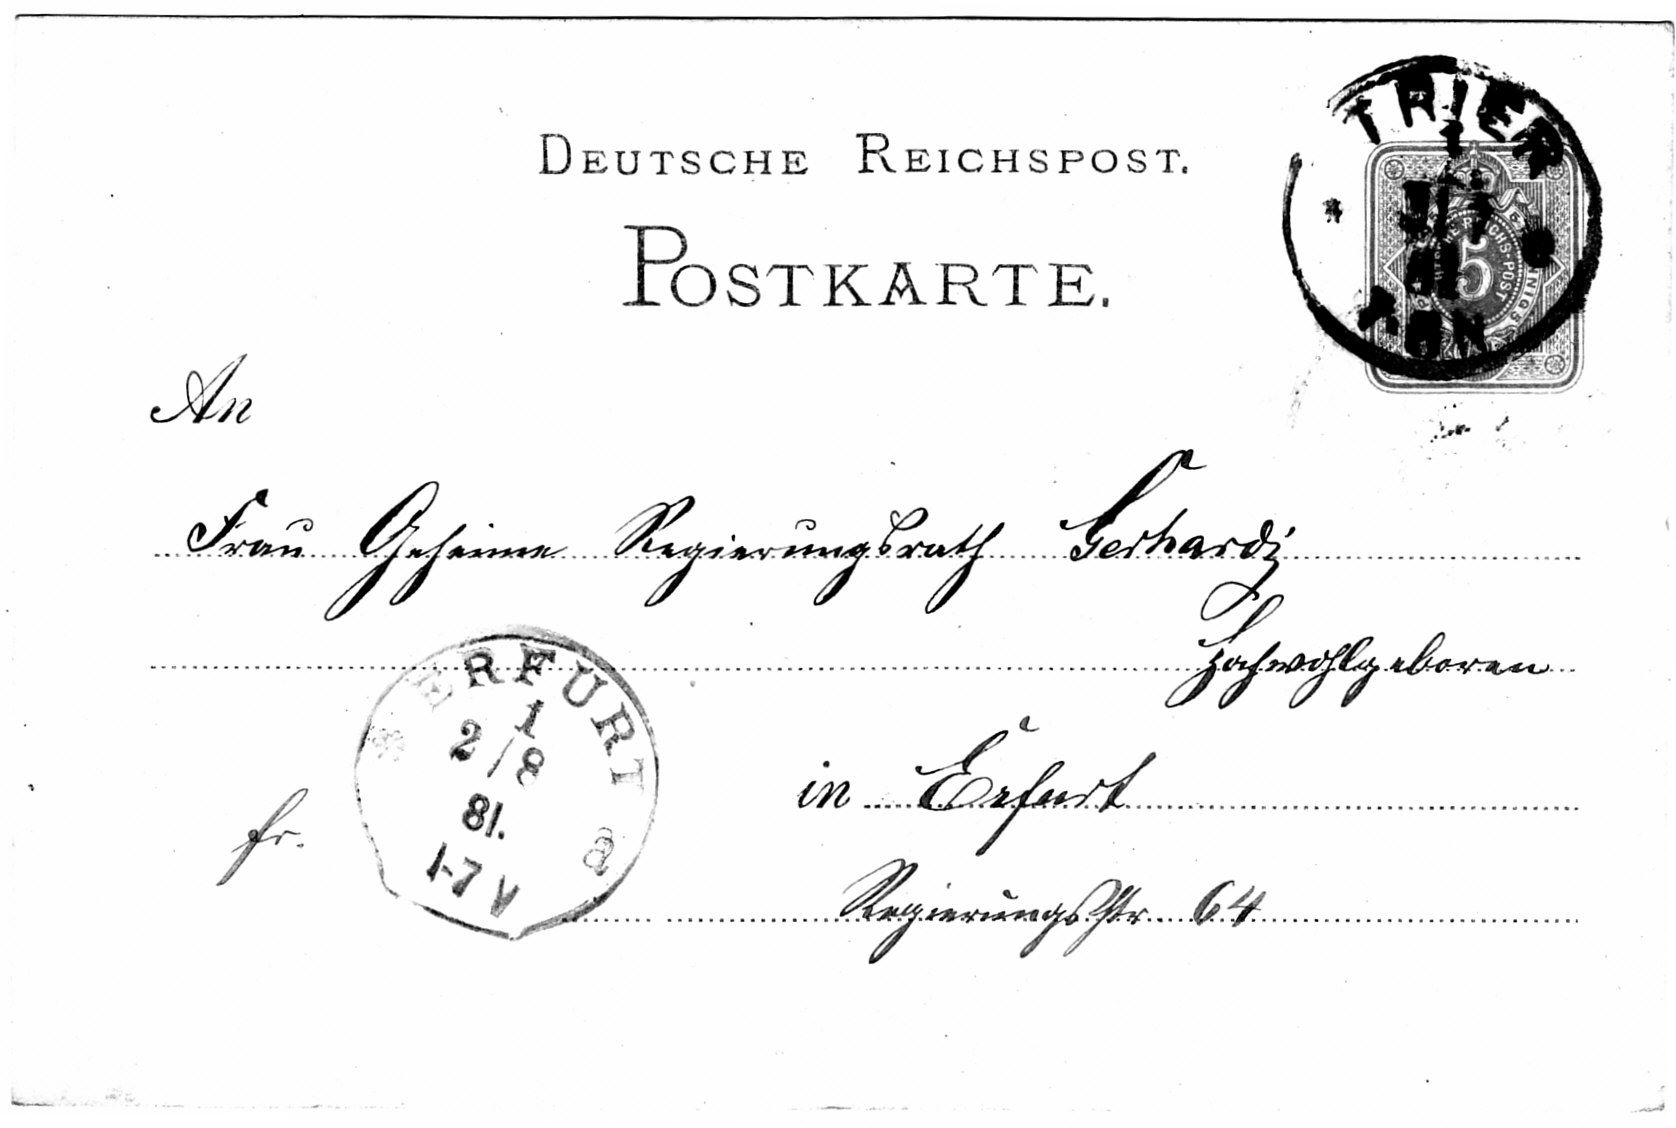 DEUTSCHE REICHSPOST.
POSTKARTE.
TRIER
5
An
Frau Geheime Regierungsrath Gerhardi
Hochwohlgeboren
ERFURT
1
2/8
81.
1-7 V
a
in Erfurt
fr.
Regierungsstr. 64